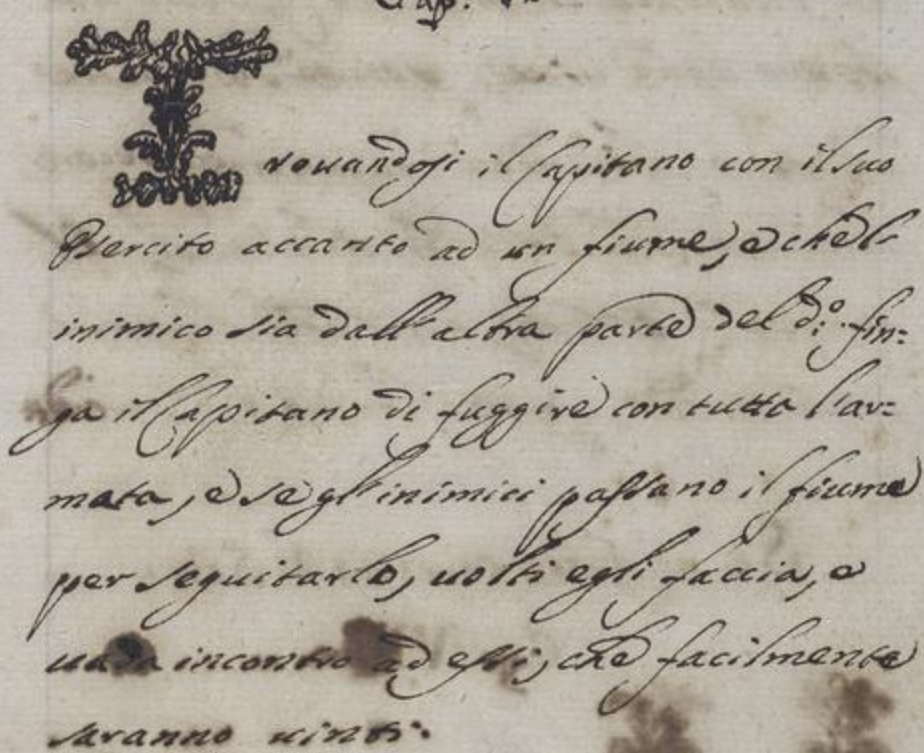 Cap.
Trouandosi il Capitano con il suo
Esercito accanto ad un fiume, e che l'
inimico sia dall'altra parte del d.o fin=
ga il Capitano di fuggire con tutta l'ar=
mata, e se gl'inimici passano il fiume
per seguitarlo, uolti egli faccia, e
uada incontro ad essi, che facilmente
saranno uinti.